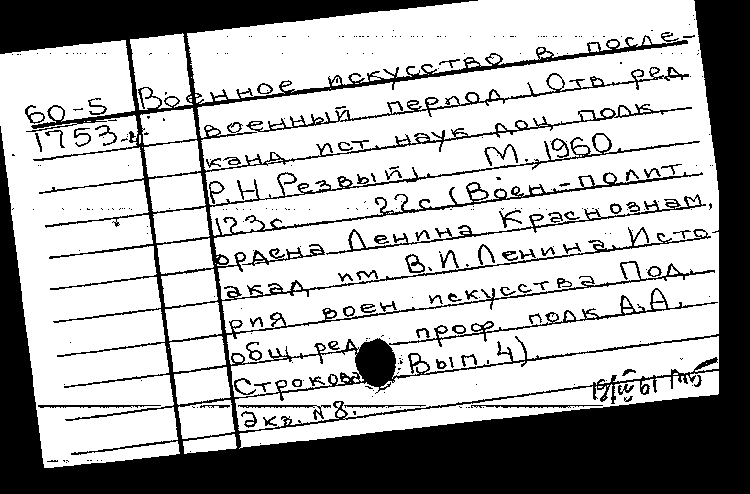 60-5 Военное искусство в после-
1753-4 военный период (Отв. ред
канд ист. наук доц полк.
Р.Н. Резвый). М., 1960.
123с. 22с (Воен.-полит.
ордена Ленина Краснознам.
акад им. В.И. Ленина. Исто-
рия воен. искусства Под.
общ. ред. проф полк А.А.
Строкова Вып. 4).
Экз. №8.
61